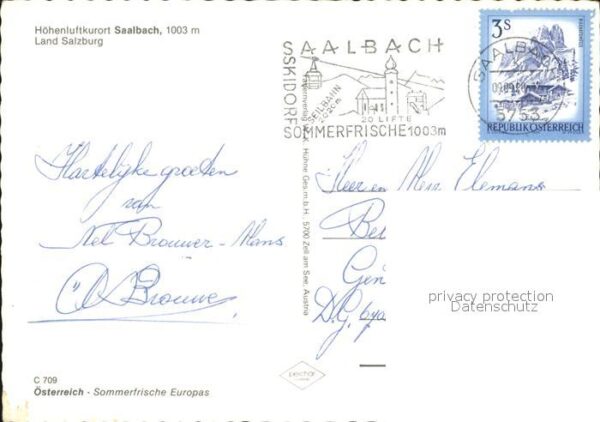 Höhenluftkurort Saalbach, 1003 m
Land Salzburg
SAALBACH
SKIDORF
SEILBAHN
2020m
20 LIFTE
SOMMERFRISCHE 1003m
3S
SAALBACH
5753
REPUBLIK ÖSTERREICH
Hartelijke groeten
van
Nel Brouwer-Mans
Brouwer
Hühne Ges.m.b.H., 5700 Zell am See, Austria
Heer en Mevr. Elemans
Gen
privacy protection
Datenschutz
C 709
Österreich - Sommerfrische Europas